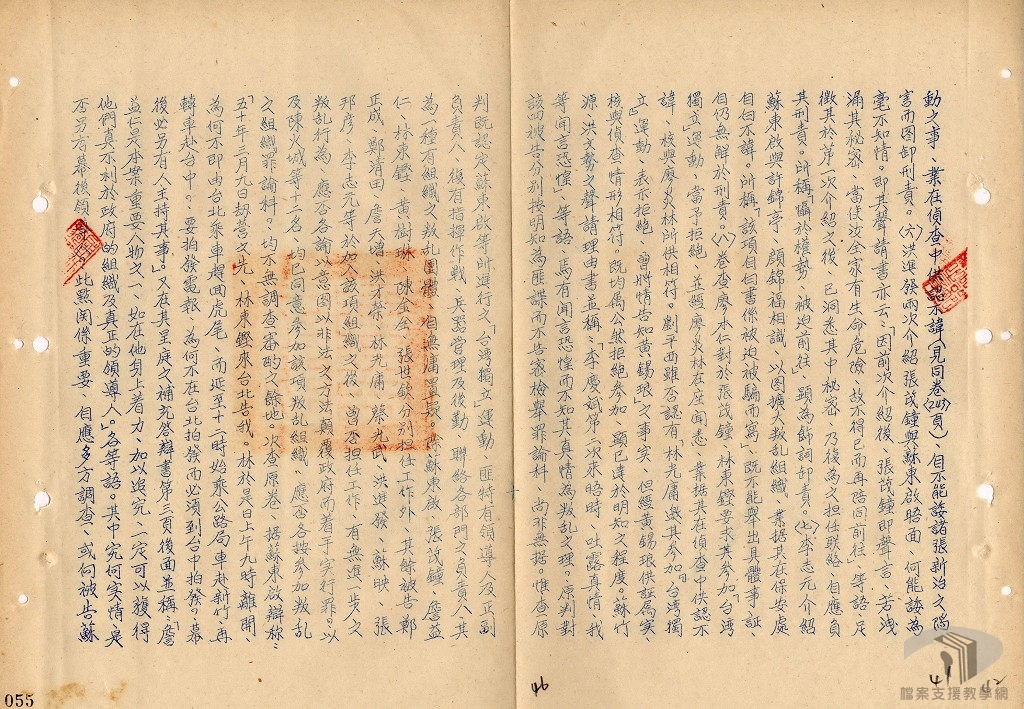 動之事、業在偵查中供認不諱(見同卷(243)頁)自不能諉諸張新治之陷
害而圖卸刑責。(六)洪進發兩次介紹張茂鐘與蘇東啟晤面、何能諉為
毫不知情。即其聲請書亦云、「因前次介紹後、張茂鐘即聲言、若洩
漏其秘密、當使汝全家有生命危險、故不得已而再陪同前往」、等語足
徵其於第一次介紹之後、已洞悉其中秘密、乃後為之担任联絡、自應負
其刑責。所稱懾於權勢、被迫前往、顯為飾詞卸責。(七)李志元介紹
蘇東啟與許錦亭、顏錦福相識、以图擴大叛乱組織、業据其在保安處
自白不諱。所稱「該項自白書係被迫被騙而寫」、既不能舉出具體事証、
自仍無解於刑責。(八)卷查廖本仁對於張茂鐘、林東鏗要求其參加「台湾
獨立」運動、當予拒絕、並經廖炎林在座聞悉、業据其在偵查中供認不
諱、核與廖炎林所供相符。劉平西雖否認有「林光庸邀其參加」「台湾獨
立」運動、表示拒絕、曾將情告知黄錫琅」之事实、但經黄錫琅供証属实、
核與偵查情形相符。既均偶介然拒絕參加、顯已達於明知之程度。蘇竹
源、洪文勢之聲請理由書並稱、「李慶斌第二次來晤時、吐露真情、我
等闻言恐惶」、等語、焉有闻言恐惶而不知其真情為叛乱之理。原判對
該四被告分別按明知為匪諜而不告密檢舉罪論科、尚非無据。惟查原
46
41
42
檔案支援教學網
判既認定蘇東啟等所進行之「台湾獨立」運動、匪特有領導人及正副
負責人、復有指揮作戰、兵器管理及後勤、聯絡各部門之負責人、其
為一種有組織之叛乱團體、自無庸置疑。除蘇東啟、張茂鐘、詹益
仁、林東鏗、黄樹琳、陳金全、張世欽分別担任工作外、其餘被告鄭
正成、鄭清田、詹天增、洪才榮、林光庸、蔡光武、洪進發、蘇映、張
邦彥、李志元等於加入該項組織之後、曾否担任工作、有無進一步之
叛乱行為、應否各論以意图以非法之方法顛覆政府而着手实行罪。以
及陳火城等十二名、均已同意參加該項叛乱組織、應否各按參加叛乱
之組織罪論科。均不無調查審酌之餘地。次查原卷、据蘇東啟辯称、
「五十年三月九日劫營之先、林東鏗來台北告我。林於是日上午九時離開
為何不即由台北乘車趕回虎尾、而延至十一時始乘公路局車赴新竹、再
轉車赴台中。要拍發電報、為何不在台北拍發而必須到台中拍發。幕
後必另有人主持其事」。又在其呈庭之補充答辯書第三頁後面並稱、「詹
益仁是本案重要人物之一、如在他身上着力、加以追究、一定可以獲得
他們真不利於政府的組織及真正的領導人」。各等語。其中究何实情、是
否另有幕後領導、此點関係重要、自應多方調查、或向被告蘇
055